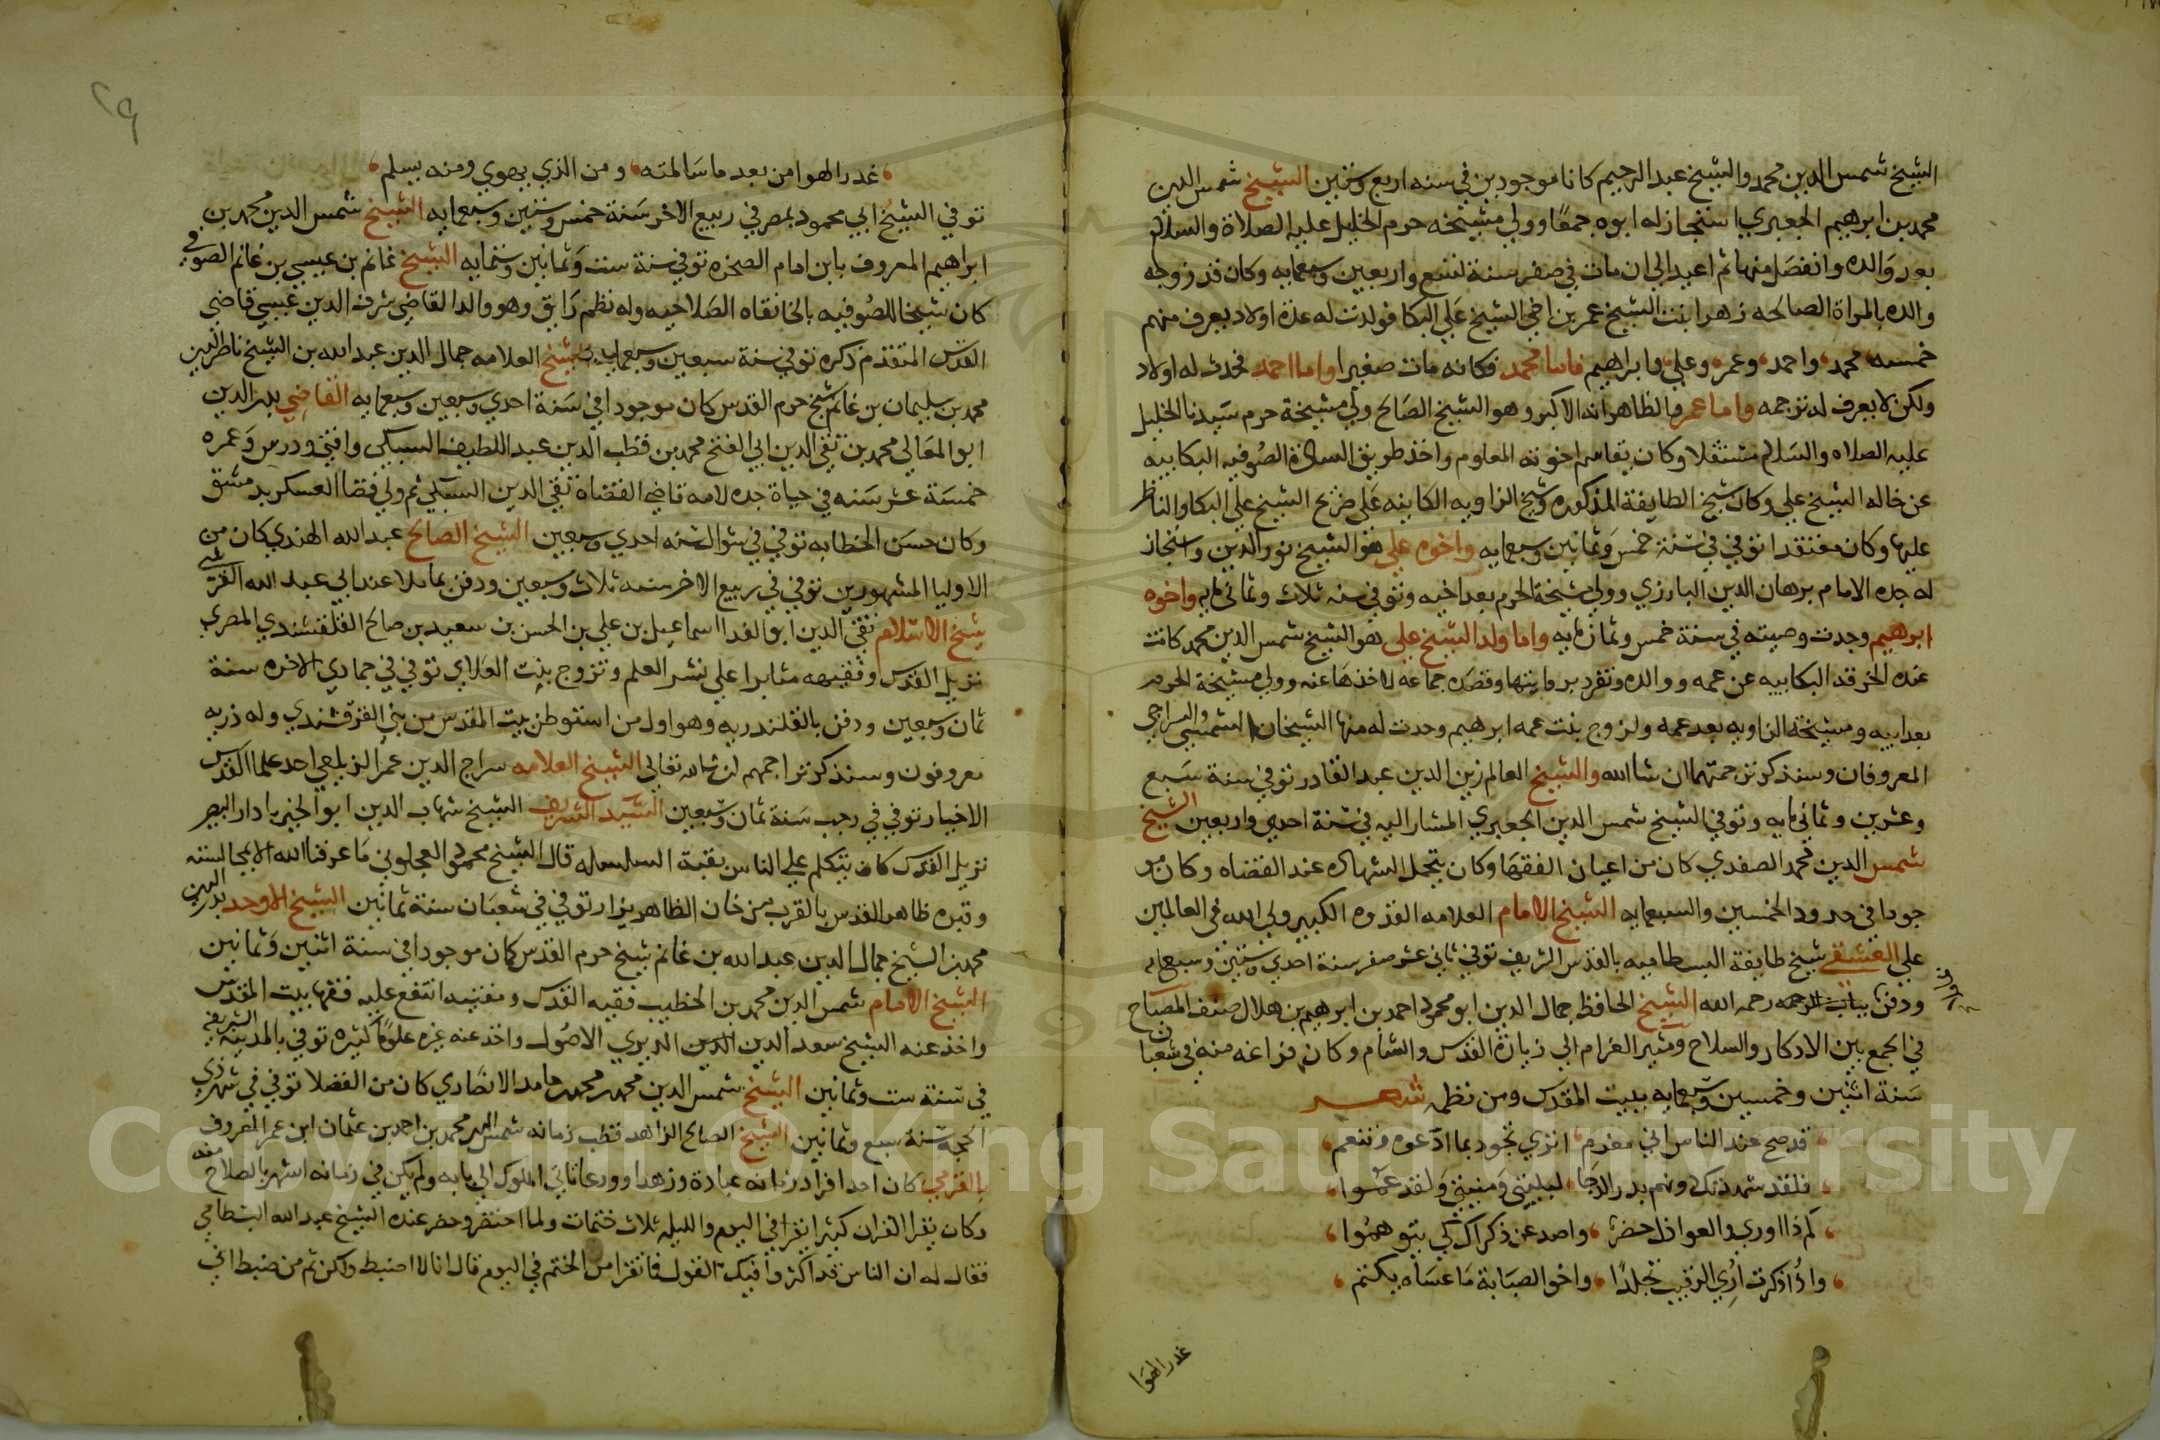 الشيخ شمس الدين محمد والشيخ عبد الرحيم كانا موجودين في سنه اربع وستين الشيخ شمس الدين
محمد بن ابرهيم الجعبري استجاز له ابوه جمعا وولي مشيخه حرم الخليل عليه الصلاة والسلام
بعد والده وانفصل منها ثم اعيد الي ان مات في صفر سنة تسع واربعين وسبعمايه وكان قد زوجه
والده بالمراة الصالحه زهرا بنت الشيخ عمر بن اخي الشيخ علي البكا فولدت له عدة اولاد يعرف منهم
خمسه محمد واحمد وعمر وعلي وابراهيم فاما محمد فكانه مات صغيرا واما احمد فحدث له اولاد
ولكن لا يعرف له ترجمه واما عمر فالظاهر انه الاكبر وهو الشيخ الصالح ولي مشيخة حرم سيدنا الخليل
عليه الصلاه والسلام مستقلا وكان يقاسم اخوته المعلوم واخذ طريق السادة الصوفيه البكابيه
عن خاله الشيخ علي وكان شيخ الطايفة المذكوره وشيخ الزاويه الكاينه علي ضريح الشيخ علي البكا والناظر
عليها وكان معتقدا توفي في سنة خمس وثمانين وسبعمايه واخوه علي هو الشيخ نور الدين واستجاز
له جده الامام برهان الدين البارزي وولي مشيخة الحرم بعد اخيه وتوفي سنه ثلاث وثماني مايه واخوه
ابرهيم وجدت وصيته في سنة خمس وثمان مايه واما ولد الشيخ علي هو الشيخ شمس الدين محمد كانت
عنده الخرقه البكابيه عن عمه ووالده وتفرد بروايتها وقصده جماعه لاخذها عنه وولي مشيخة الحرم
بعد ابيه ومشيخة الزاويه بعد عمه وتزوج بنت عمه ابرهيم وحدث له منها الشيخان الشمسي والسراجي
المعروفان وسنذكر ترجمتهما ان شا الله والشيخ العالم زين الدين عبد القادر توفي سنة سبع
وعشرين وثماني مايه وتوفي الشيخ شمس الدين الجعبري المشار اليه في سنة احدي واربعين الشيخ
شمس الدين محمد الصفدي كان من اعيان الفقها وكان يتحمل الشهاده عند القضاه وكان مو
جودا في حدود الخمسين والسبعمايه الشيخ الامام العلامه القدوه الكبير ولي الله في العالمين
علي العشقي شيخ طايفة البسطاميه بالقدس الشريف توفي ثاني عشر صفر سنة احدي وستين وسبع مايه
ودفن بباب الرحمه رحمه الله الشيخ الحافظ جمال الدين ابو محمود احمد بن ابرهيم بن هلال صنف المصباح
في الجمع بين الاذكار والسلاح ومثير الغرام الي زيارة القدس والشام وكان فراغه منه في شعبان
سنة اثنين وخمسين وسبعمايه ببيت المقدس ومن نظمه شعر
قد صح عند الناس اني مغرم اتري تجود بما ادعوه وتنعم
فلقد شهدتك ونم بدر الدجا لبليتي ومنيتي ولقد عموا
كم ذا اوري والعواذل حضر واصد عن ذكراك كي يتوهموا
واذا ذكرت اري الرقيب تجلدا واخو الصبابة ما عساه يكتم
غدر الهوا
غدر الهوا من بعد ما سالمته ومن الذي يهوي ومنه يسلم
توفي الشيخ ابي محمود بمصر في ربيع الاخر سنة خمس وستين وسبعمايه الشيخ شمس الدين محمد بن
ابراهيم المعروف بابن امام الصخره توفي سنة ست وثمانين وستمايه الشيخ غانم بن عيسي بن غانم الصوفي
كان شيخا للصوفيه بالخانقاه الصلاحيه وله نظم رايق وهو والد القاضي شرف الدين عيسي قاضي
القدس المتقدم ذكره توفي سنة سبعين وسبعمايه الشيخ العلامه جمال الدين عبد الله بن الشيخ ناظر الدين
محمد بن سليمان بن غانم شيخ حرم القدس كان موجودا في سنة احدي وسبعين وسبعمايه القاضي بدر الدين
ابو المعالي محمد بن تقي الدين ابي الفتح محمد بن قطب الدين عبد اللطيف السبكي وافتي ودرس وعمره
خمسة عشر سنه في حياة جده لامه قاضي القضاة تقي الدين السبكي ثم ولي قضا العسكر بدمشق
وكان حسن الخطابه توفي في شوال سنه احدي وسبعين الشيخ الصالح عبد الله الهندي كان من
الاوليا المشهورين توفي في ربيع الاخر سنه ثلاث وسبعين ودفن بماملا عند ابي عبد الله القرشي
شيخ الاسلام تقي الدين ابو الفدا اسماعيل بن علي بن الحسن بن سعيد بن صالح القلقشندي المصري
نزيل القدس وفقيهه مثابرا علي نشر العلم وتزوج بنت العلاي توفي في جمادي الاخره سنة
ثمان وسبعين ودفن بالقلندريه وهو اول من استوطن بيت المقدس من بني القرقشندي وله ذريه
معروفون وسنذكر تراجمهم ان شا الله تعالي الشيخ العلامه سراج الدين عمر الزيلعي احد علما القدس
الاخيار توفي في رجب سنة ثمان وسبعين السيد الشريف الشيخ شهاب الدين ابو الخير دادار البصر
نزيل القدس كان يتكلم علي الناس بقبة السلسله قال الشيخ محمود العجلوني ما عرفنا الله الا بمجالسته
وقبره ظاهر القدس بالقرب من خان الظاهر يزار توفي في شعبان سنة ثمانين الشيخ الاوحد بدر الدين
محمد بن الشيخ جمال الدين عبد الله بن غانم شيخ حرم القدس كان موجودا في سنة اثنين وثمانين
الشيخ الامام شمس الدين محمد بن الخطيب فقيه القدس ومفتيه انتفع عليه فقها بيت المقدس
واخذ عنه الشيخ سعد الدين الديري الاصول واخذ عنه غيره علوما كثيره توفي بالمدينه الشريفه
في سنة ست وثمانين الشيخ شمس الدين محمد بن محمد بن حامد الانصاري كان من الفضلا توفي في شهر ذي
الحجة سنة سبع وثمانين الشيخ الصالح الزاهد قطب زمانه شمس الدين محمد بن احمد بن عثمان ابن عمر المعروف
بالقرمي كان احد افراد زمانه عبادة وزهدا وورعا تاتي الملوك الي بابه ولم يكن في زمانه اشهر بالصلاح منه
وكان يقرا القران كثيرا يقرا في اليوم والليله ثلاث ختمات ولما احتضر وحضر عنده الشيخ عبد الله البسطامي
فقال له ان الناس قد اكثروا فيك القول فما تقرا من الختم في اليوم قال انا لا اضبط ولكن ثم من ضبط اني